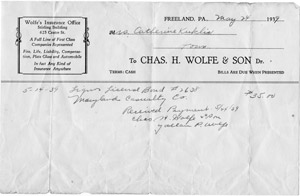 Wolfe's Insurance Office
Stirling Building
625 Centre St.
A Full Line of First Class
Companies Represented
Fire, Life, Liability, Compensation,
Plate Glass and Automobile
In fact Any Kind of
Insurance Anywhere
FREELAND, PA. May 29 1939
Mrs Catherine Kuklis
Town
To CHAS. H. WOLFE & SON Dr.
TERMS: CASH BILLS ARE DUE WHEN PRESENTED
Liquor License Bond
Maryland Casualty Co. $25.00
Received Payment
Chas. H. Wolfe & Son